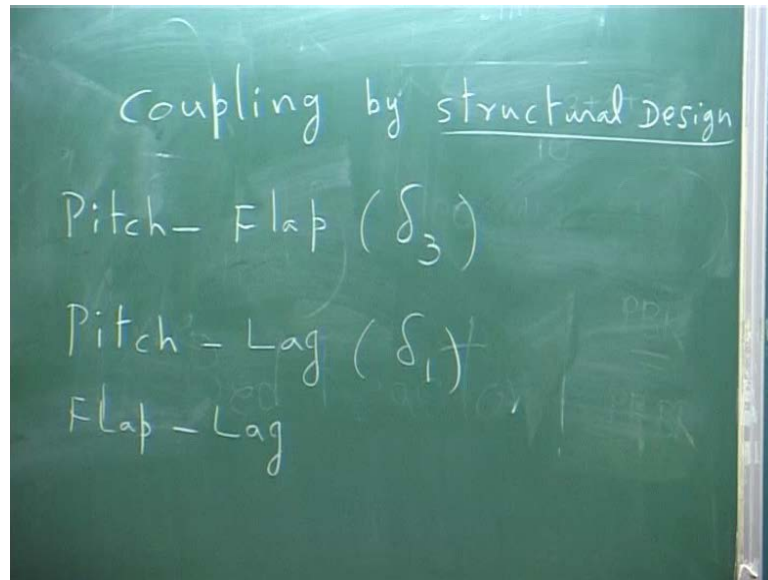 Coupling by structural Design
Pitch - Flap (δ₃)
Pitch - Lag (δ₁)
Flap - Lag